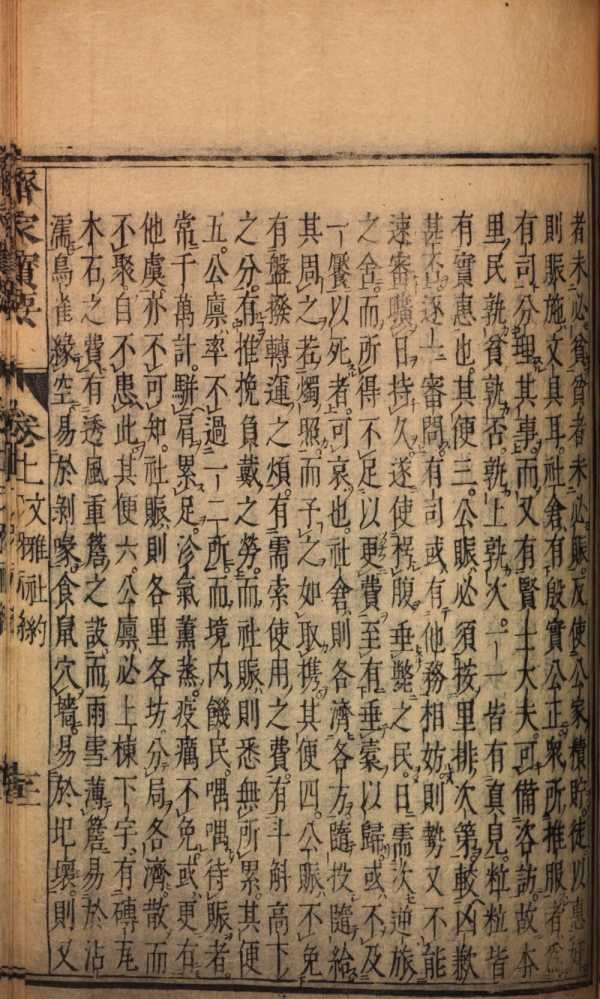 者未必貧貧者未必賑反使公家積貯徒以惠奸
則賑施文具耳社倉有殷實公正衆所推服者爲
有司分理其事而又有賢士大夫可備咨訪故本
里民孰貧孰否孰上孰次一一皆有真見粒粒皆
有實惠也其便三公賑必須按里排次第較凶歉
甚否逐上審問有司或有他務相妨則勢又不能
速審曠日持久遂使枵腹垂斃之民日需次逆旅
之舍而所得不足以更費至有垂橐以歸或不及
一饜以死者可哀也社倉則各濟各方隨投隨給
其周之若燭照而予之如取携其便四公賑不免
有盤撥轉運之煩有需索使用之費有斗斛高下
之分有推挽負戴之勞而社賑則悉無所累其便
五公廪率不過一二所而境内饑民喁喁待賑者
常千萬計駢肩累足沴氣薰蒸疫癘不免或更有
他虞亦不可知社賑則各里各坊分局各濟散而
不聚自不患此其便六公廪必上棟下宇有磚瓦
木石之費有透風重簷之設而雨雪薄簷易於沾
濡鳥雀緣空易於剝啄食鼠穴墻易於圯壞則又
齊家寶要 卷上 文雅社約 三